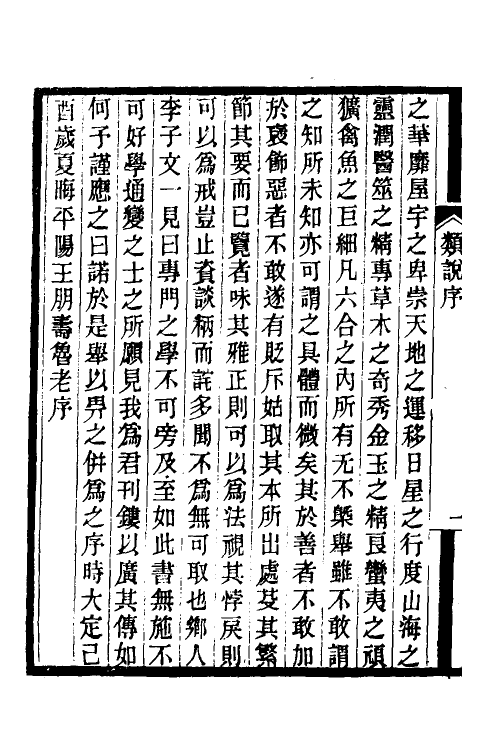 類說序
一
之華靡屋宇之卑崇天地之運移日星之行度山海之
靈潤醫筮之精專草木之奇秀金玉之精良蠻夷之頑
獷禽魚之巨細凡六合之內所有无不槩舉雖不敢謂
之知所未知亦可謂之具體而微矣其於善者不敢加
於襃飾惡者不敢遂有貶斥姑取其本所出處芟其繁
節其要而已覽者味其雅正則可以為法視其悖戾則
可以為戒豈止資談柄而詫多聞不為無可取也鄉人
李子文一見曰專門之學不可旁及至如此書無施不
可好學通變之士之所願見我為君刊鏤以廣其傳如
何予謹應之曰諾於是舉以畀之併為之序時大定己
酉歲夏晦平陽王朋壽魯老序